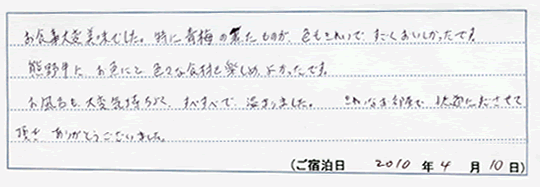 お食事大変美味でした。特に青梅の煮たものが、色もきれいで すごくおいしかったです
熊野牛に お魚にと 色々な食材も楽しめ よかったです。
お風呂も、大変気持ちよく、すべすべで、温まりました。 きれいなお部屋で ださせて
頂き ありがとうございました。
(ご宿泊日 2010 年 4 月 10 日)